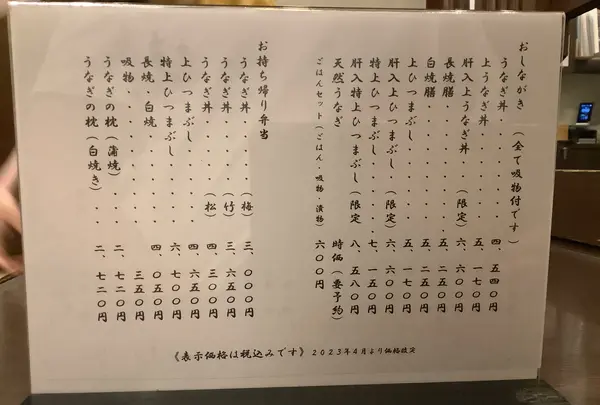 おしながき (全て吸物付です)
うなぎ丼・・・・・・・四、五四〇円
上うなぎ丼・・・・・・五、一七〇円
肝入上うなぎ丼(限定)・六、六〇〇円
長焼膳・・・・・・・・五、二五〇円
白焼膳・・・・・・・・五、二五〇円
上ひつまぶし・・・・・五、一七〇円
肝入上ひつまぶし(限定)六、六〇〇円
特上ひつまぶし・・・・七、一五〇円
肝入特上ひつまぶし(限定)八、五八〇円
天然うなぎ 時価(要予約)
ごはんセット(ごはん・吸物・漬物) 六〇〇円
お持ち帰り弁当
うなぎ丼・・・・(梅) 三、〇〇〇円
うなぎ丼・・・・(竹) 三、六五〇円
うなぎ丼・・・・(松) 四、三〇〇円
上ひつまぶし・・・・・四、六五〇円
特上ひつまぶし・・・・六、七〇〇円
長焼・白焼・・・・・・四、〇五〇円
吸物・・・・・・・・・三五〇円
うなぎの枕(蒲焼)・・・二、七二〇円
うなぎの枕(白焼き)・・二、七二〇円
《表示価格は税込みです》2023年4月より価格改定